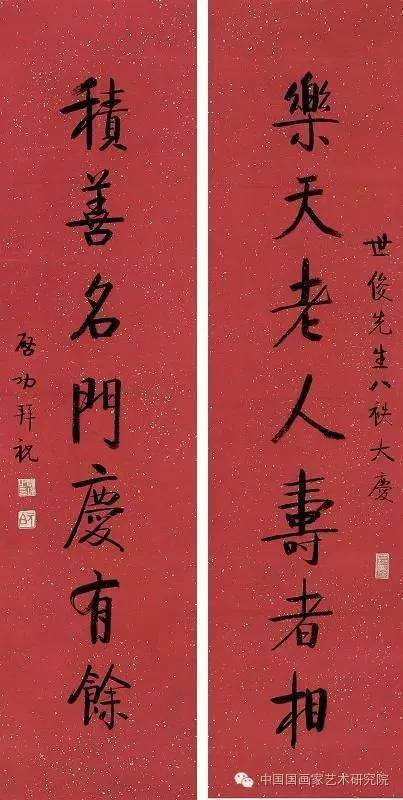 世俊先生八袟大慶
樂天老人壽者相
積善名門慶有餘
啓功拜祝
中国国画家艺术研究院